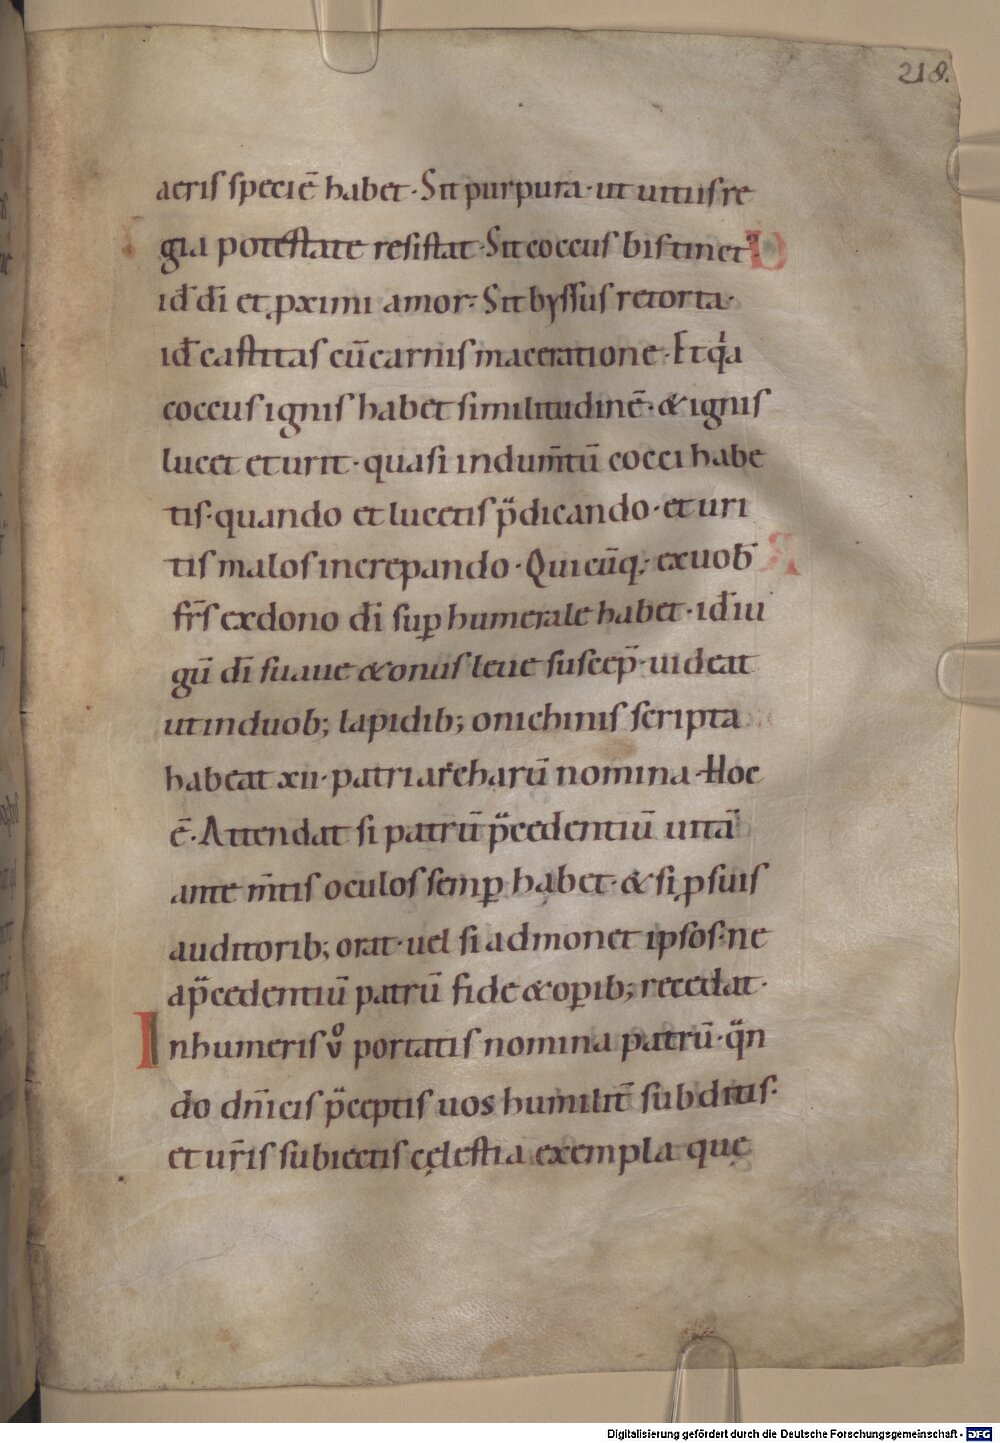 218.
aeris speciē habet · Sit purpura · ut uitiis re
gia potestate resistat · Sit coccus bis tinct᷒ ·
id̄ dī et ꝓximi amor · Sit byssus retorta ·
id̄ castitas cū carnis maceratione · Et qͥa
coccus ignis habet similitudinē · & ignis
lucet et urit · quasi indum̄tū cocci habe
tis · quando et lucetis p̈dicando · et uri
tis malos increpando · Quicūq; ex uob̄
fr̄s ex dono dī sup̲ humerale habet · id̄ iu
gū dī suaue & onus leue suscep̄ · uideat
ut in duob; lapidib; onichinis scripta
habeat xii · patriarcharū nomina · Hoc
ē · Attendat si patrū p̈cedentiū uitā
ante m̄tis oculos semꝑ habet · & si ꝓ suis
auditorib; orat · uel si admonet ipsos · ne
a p̈cedentiū patrū fide & oꝑib; recedat ·
In humeris v̊ portatis nomina patrū · qͣn
do dn̄icis p̈ceptis uos humilit̄ subditis ·
et ur̄is subiectis cęlestia exempla quę
Digitalisierung gefördert durch die Deutsche Forschungsgemeinschaft - DFG